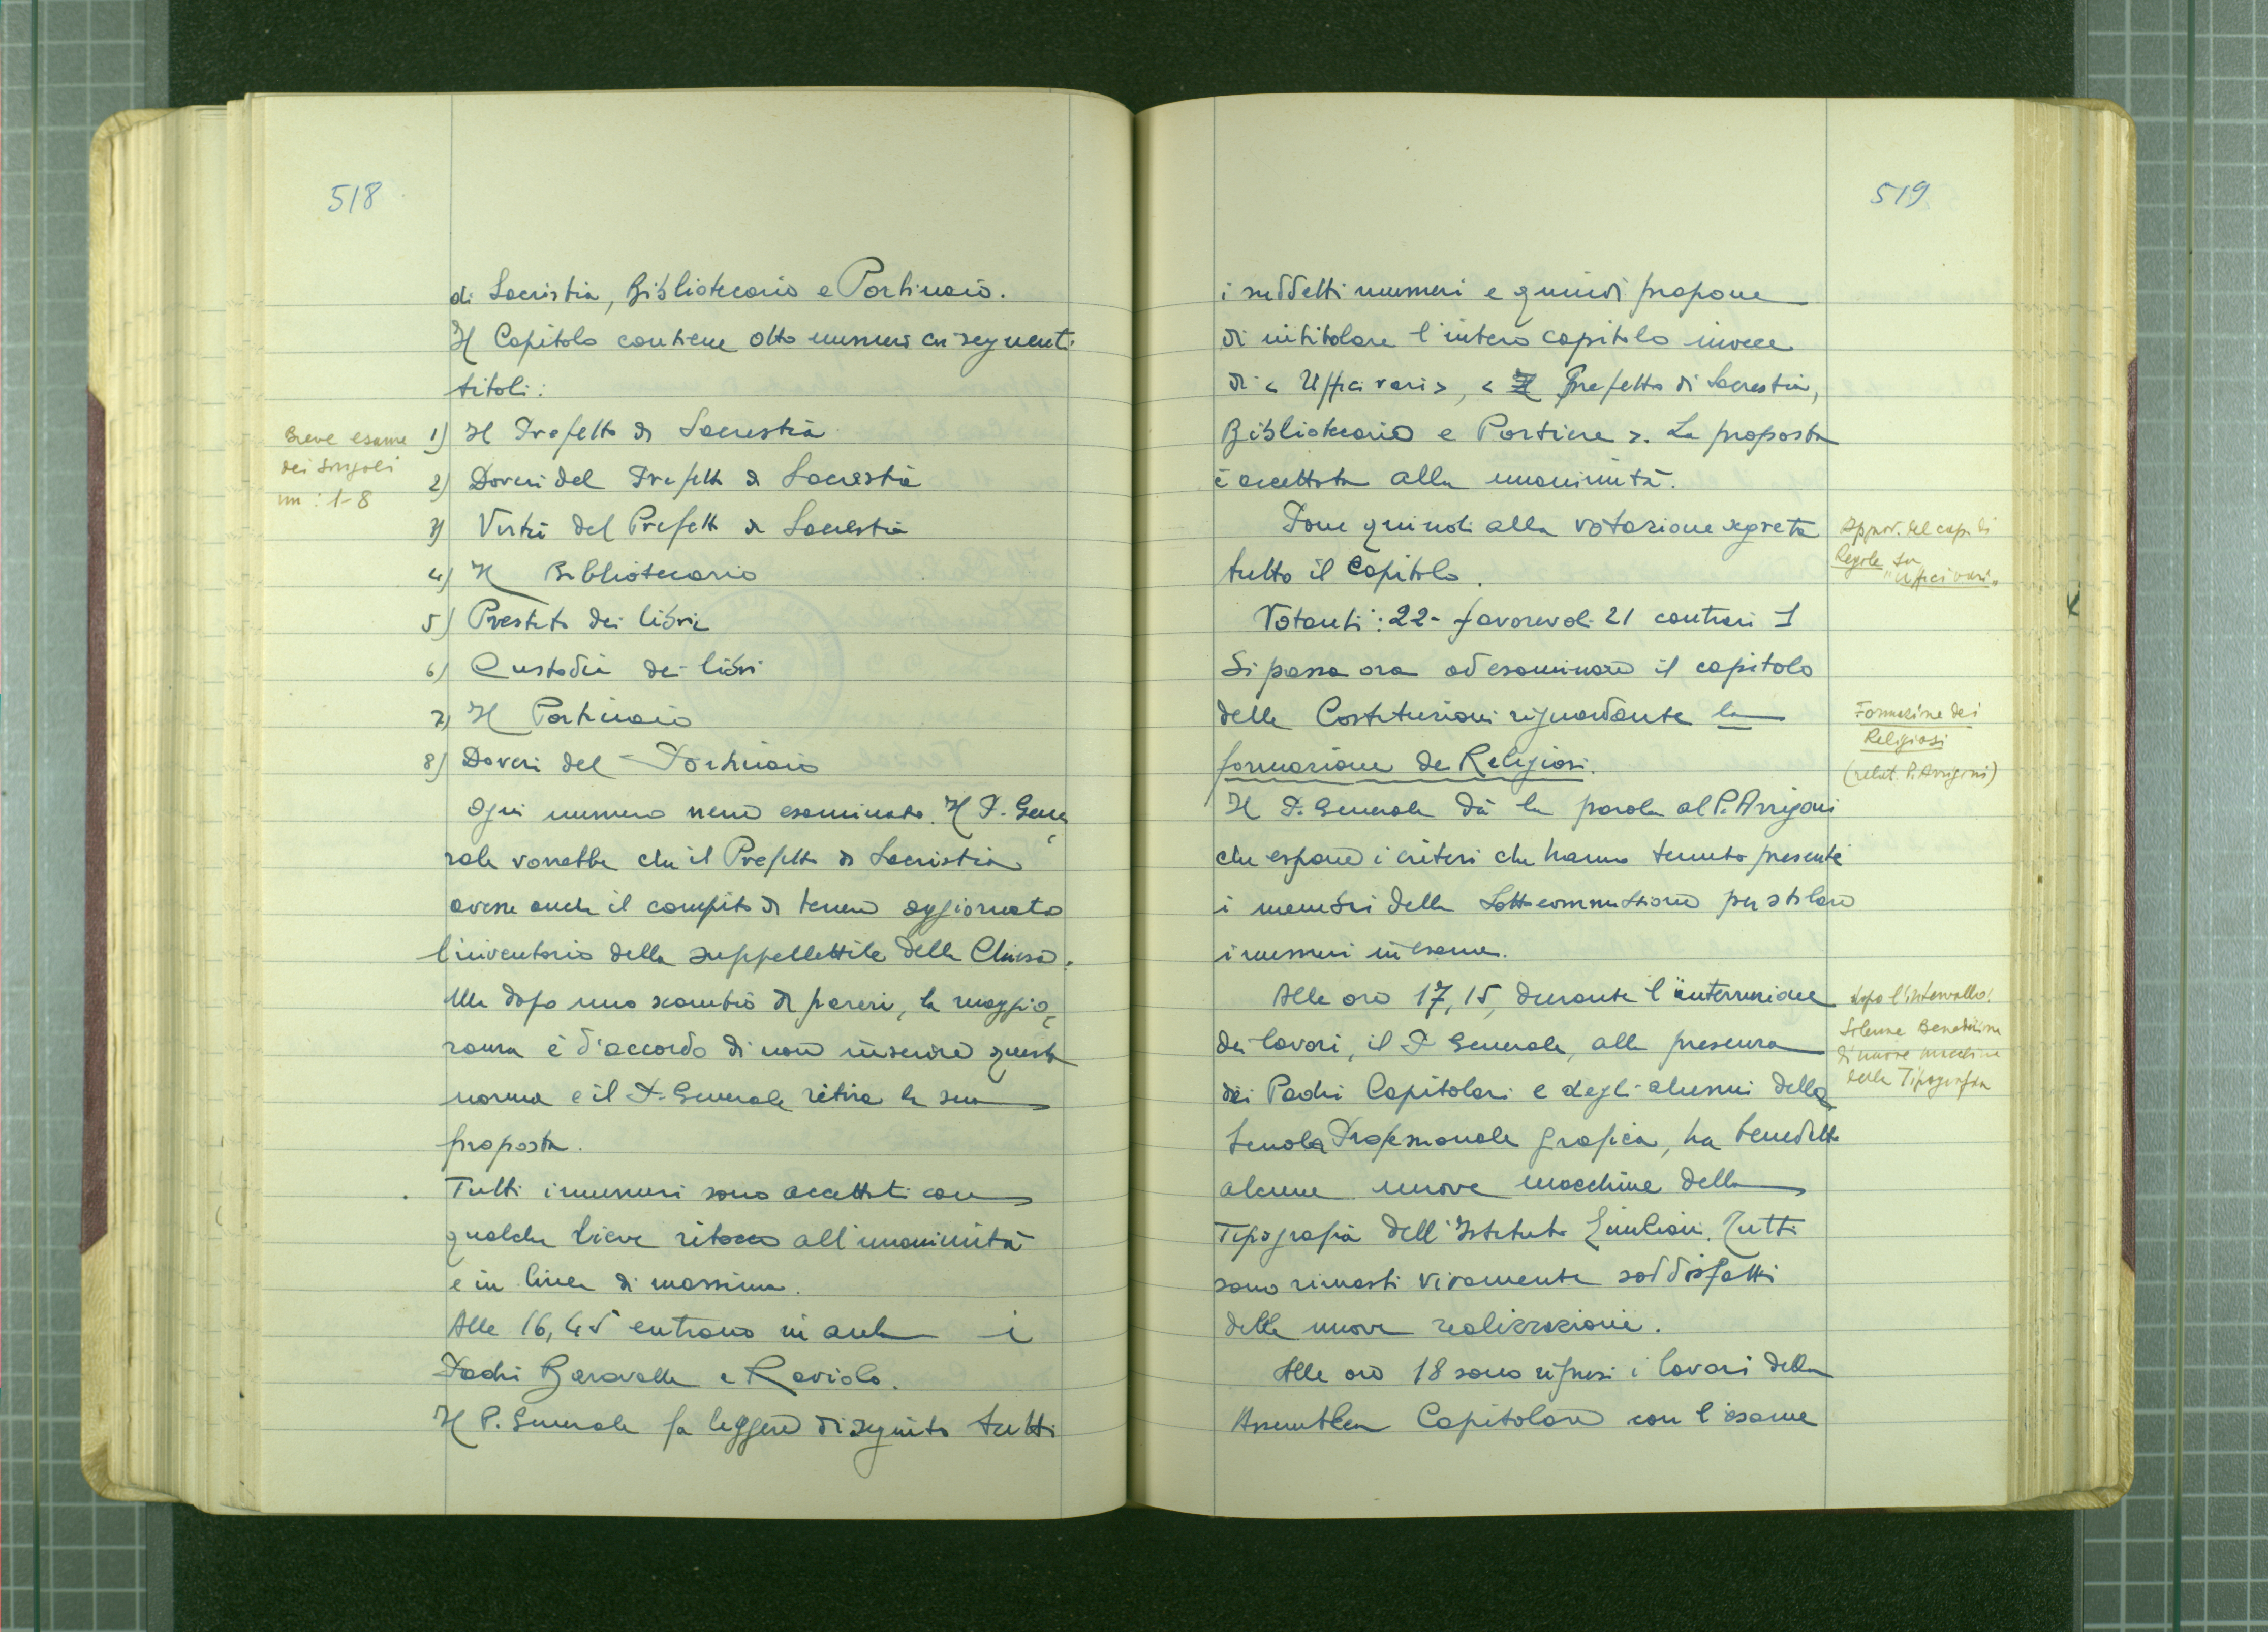 518
di Sacristia, Bibliotecario e Portinaio.
Il Capitolo contiene otto numeri coi seguenti
titoli:
Breve esame
dei singoli
nn: 1-8
1) Il Prefetto di Sacrestia
2) Doveri del Prefetto di Sacrestia
3) Virtù del Prefetto di Sacrestia
4) Il Bibliotecario
5) Prestito dei libri
6) Custodia dei libri
7) Il Portinaio
8) Doveri del Portinaio
Ogni numero viene esaminato. Il P. Gene
rale vorrebbe che il Prefetto di Sacristia
avesse anche il compito di tenere aggiornato
l'inventario della suppellettile della Chiesa.
Ma dopo uno scambio di pareri, la maggio
ranza è d'accordo di non inserire questa
norma e il P. Generale ritira la sua
proposta.
Tutti i numeri sono accettati con
qualche lieve ritocco all'unanimità
e in linea di massima.
Alle 16,45 entrano in aula i
Padri Baravalle e Raviolo.
Il P. Generale fa leggere di seguito tutti
519
i suddetti numeri e quindi propone
di intitolare l'intero capitolo invece
di < Uffici vari >, < Il Prefetto di Sacrestia,
Bibliotecario e Portiere >. La proposta
è accettata alla unanimità.
Pone quindi alla votazione segreta
tutto il Capitolo.
Approv. del cap. di
Regole su
"Uffici vari"
Votanti: 22 - favorevoli 21 contrari 1
Si passa ora ad esaminare il capitolo
delle Costituzioni riguardante la
formazione dei Religiosi.
Formazione dei
Religiosi
(relat. P. Arrigoni)
Il P. Generale dà la parola al P. Arrigoni
che espone i criteri che hanno tenuto presente
i membri della Sottocommissione per stilare
i numeri in esame.
Alle ore 17,15, durante l'interruzione
dei lavori, il P. Generale, alla presenza
dei Padri Capitolari e degli alunni della
Scuola Professionale grafica, ha benedetto
alcune nuove macchine della
Tipografia dell'Istituto Emiliani. Tutti
sono rimasti vivamente soddisfatti
delle nuove realizzazioni.
dopo l'intervallo:
Solenne Benedizione
di nuove macchine
della Tipografia
Alle ore 18 sono ripresi i lavori della
Assemblea Capitolare con l'esame